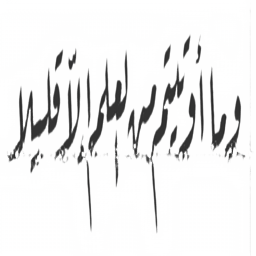 وما أوتيتم من لعلم إلا قليلا